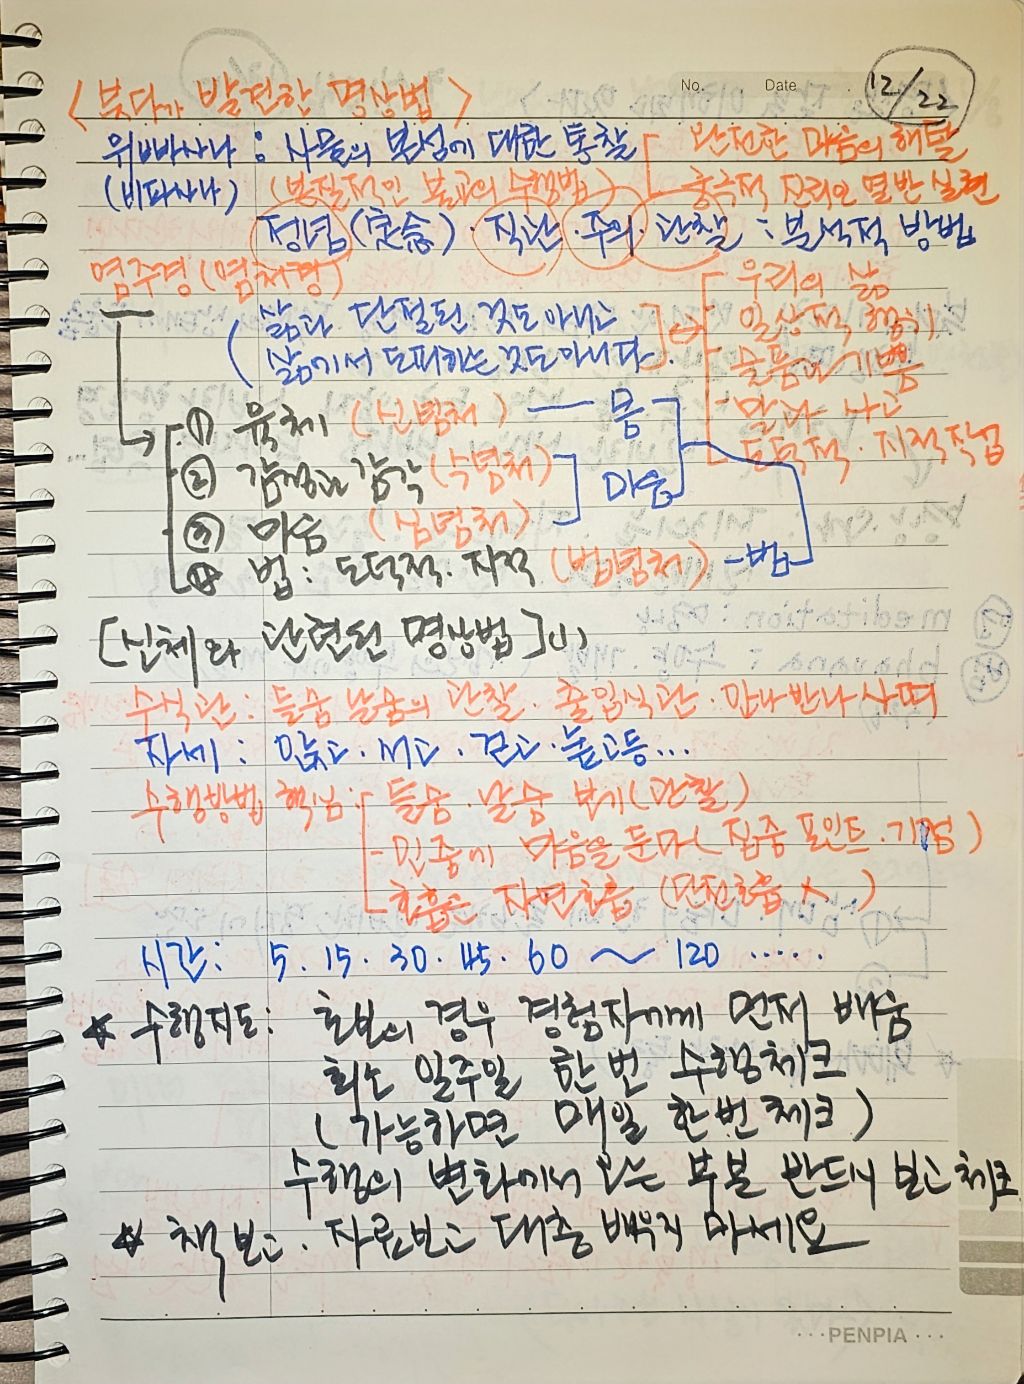 No. Date 12/22
<붓다가 발견한 명상법>
위빠사나 : 사물의 본성에 대한 통찰 완전한 마음의 해탈
(비파사나) (본질적인 불교의 수행법) 궁극적 진리인 열반 실현
정념(定念)·직관·주의·관찰 : 분석적 방법
염주경(염처경)
(삶과 단절된 것도 아니고
삶에서 도피하는 것도 아니다
우리의 삶
일상적 행위
슬픔과 기쁨
말과 사고
도덕적·지적작업
① 육체 (신념처) — 몸
② 감정과 감각 (수념처) 마음
③ 마음 (심념처)
④ 법 : 도덕적·지적 (법념처) - 법
[신체와 관련된 명상법](1)
수식관 : 들숨날숨의 관찰·출입식관·안나반나사띠
자세 : 앉고·서고·걷고·눕고등...
수행방법 핵심 - 들숨·날숨 보기(관찰)
- 인중에 마음을 둔다(집중 포인트·기점)
- 호흡은 자연호흡 (단전호흡 X)
시간 : 5·15·30·45·60 ~ 120 ·····
☆ 수행지도 : 초보의 경우 경험자에게 먼저 배움
최소 일주일 한 번 수행체크
(가능하면 매일 한번 체크)
수행의 변화에서 오는 부분 반드시 보고 체크
☆ 책보고·자료보고 대충 배우지 마세요
···PENPIA···